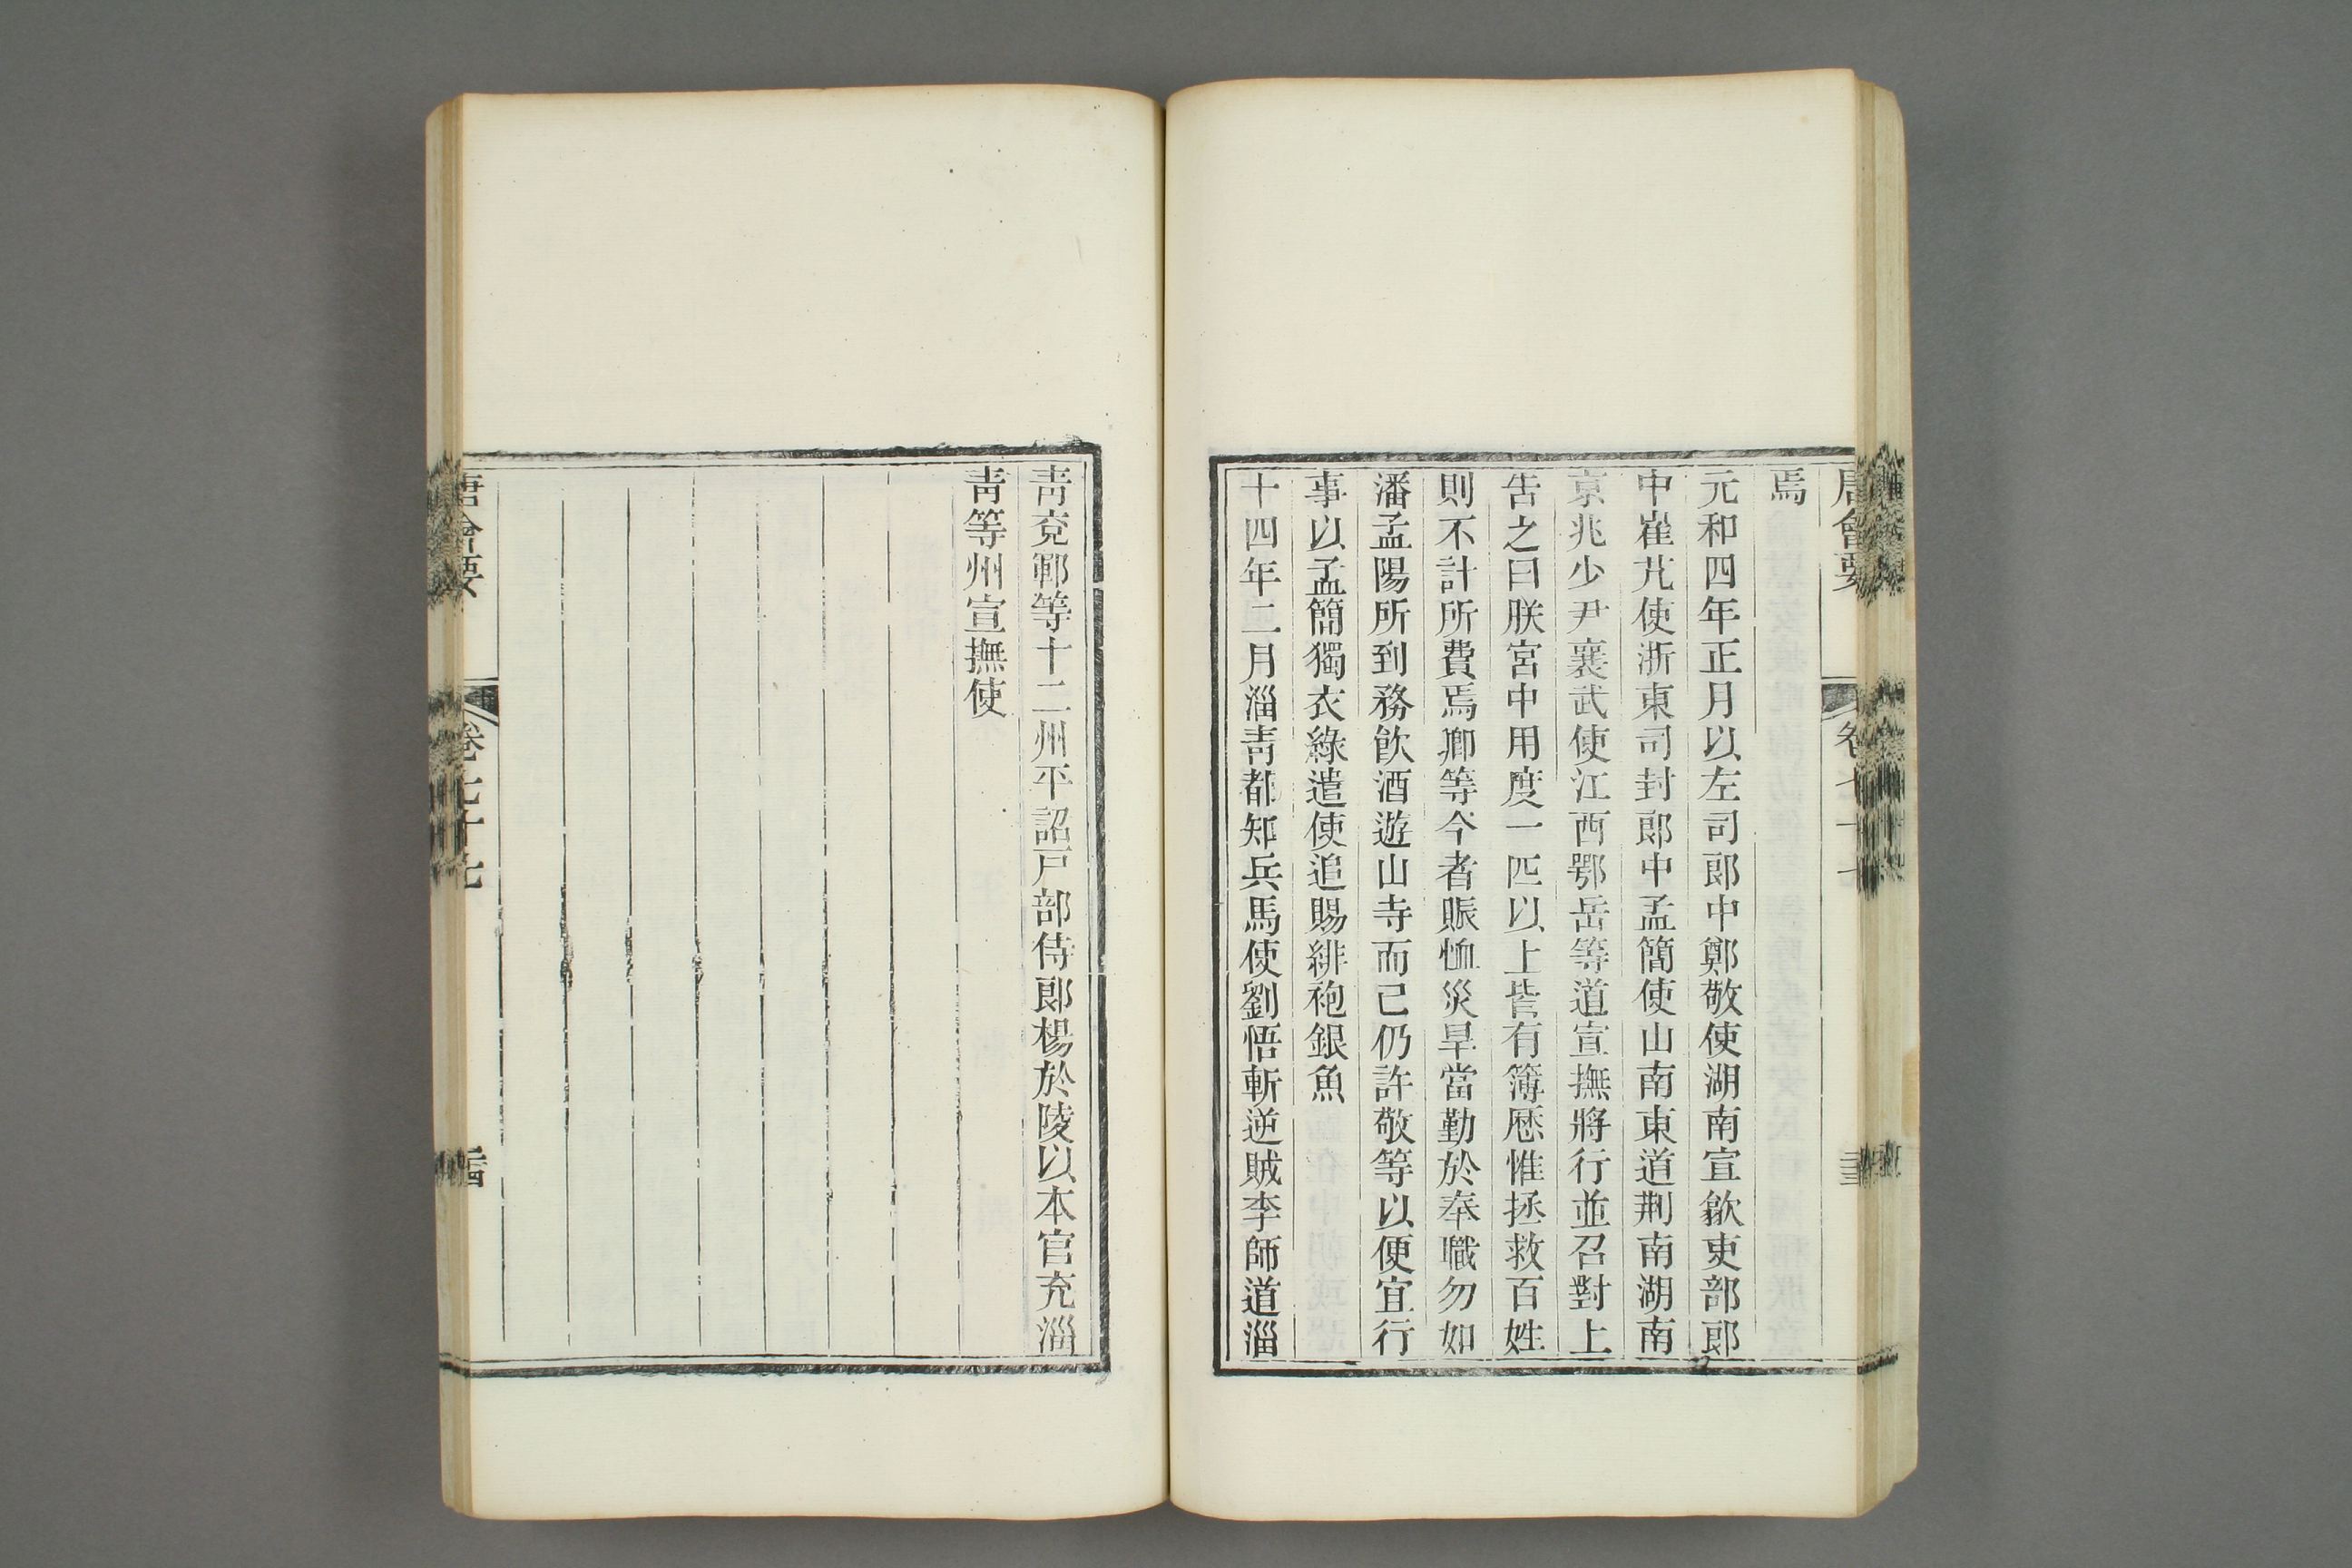 唐會要 卷七十七
焉
元和四年正月以左司郎中鄭敬使湖南宣歙吏部郎
中崔芃使浙東司封郎中孟簡使山南東道荆南湖南
京兆少尹襄武使江西鄂岳等道宣撫將行並召對上
告之曰朕宮中用度一匹以上皆有簿歷惟拯救百姓
則不計所費焉卿等今者賑恤災旱當勤於奉職勿如
潘孟陽所到務飲酒遊山寺而已仍許敬等以便宜行
事以孟簡獨衣綠遣使追賜緋袍銀魚
十四年二月淄青都知兵馬使劉悟斬逆賊李師道淄
青兗鄆等十二州平詔戸部侍郎楊於陵以本官充淄
青等州宣撫使
唐會要 卷七十七